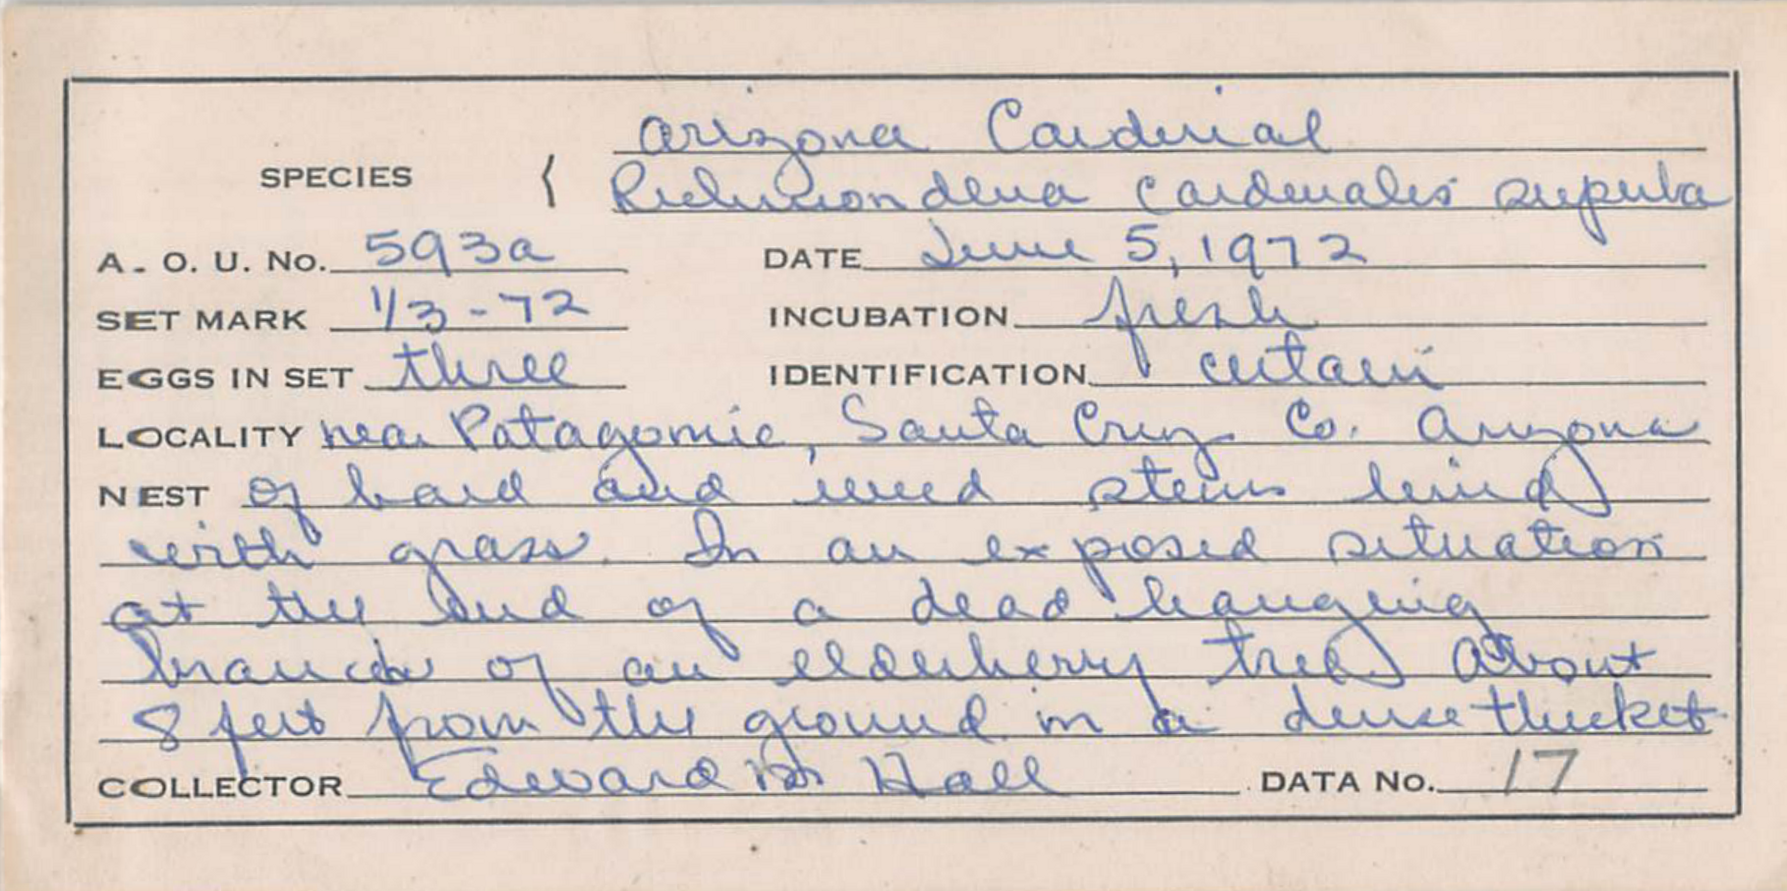 Arizona Cardinal
SPECIES { Richmondena cardenales superba
A. O. U. No. 593a DATE June 5, 1972
SET MARK 1/3-72 INCUBATION fresh
EGGS IN SET three IDENTIFICATION certain
LOCALITY near Patagonia, Santa Cruz Co. Arizona
NEST of bark and weed stems lined
with grass. In an exposed situation
at the end of a dead hanging
branch of an elderberry tree about
8 feet from the ground in a dense thicket
COLLECTOR Edward Hall DATA No. 17